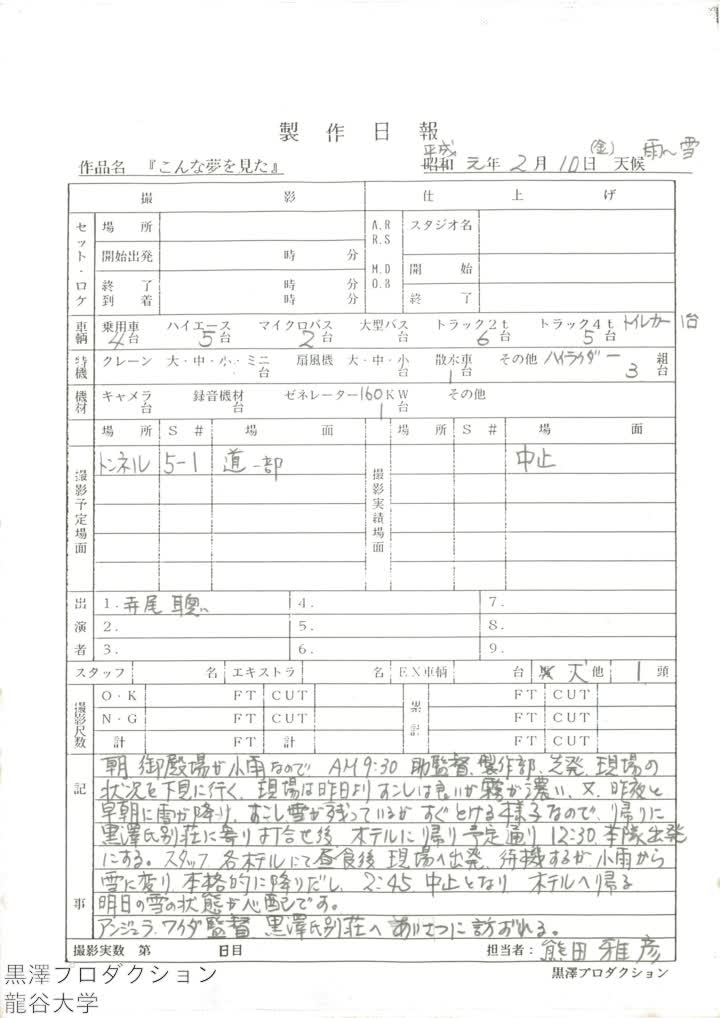 製作日報
作品名 『こんな夢を見た』 平成 昭和 元年 2月10日 (金) 天候 雨〜雪
撮影 仕上げ
セット・ロケ 場所 A.R R.S スタジオ名
開始出発 時 分 M.D O.B 開始
終了 時 分 終了
到着 時 分
車輌 乗用車 4台 ハイエース 5台 マイクロバス 2台 大型バス トラック2t 6台 トラック4t 5台 トイレカー 1台
特機 クレーン 大・中・小・ミニ 台 扇風機 大・中・小 台 散水車 1台 その他 ハイライダー 3 組台
機材 キャメラ 台 録音機材 台 ゼネレーター160KW 1台 その他
場所 S# 場面 場所 S# 場面
撮影予定場面 トンネル 5-1 道一部 撮影実績場面 中止
出演者 1.寺尾聰 4. 7.
2. 5. 8.
3. 6. 9.
スタッフ 名 エキストラ 名 EX車輌 台 犬 他 1頭
撮影尺数 O・K FT CUT 累記 FT CUT
N・G FT CUT FT CUT
計 FT 計 FT CUT
記事
朝 御殿場が小雨なので AM9:30 助監督、製作部、先発、現場の
状況を下見に行く、現場は昨日よりすこしは良いが霧が濃い、又、昨夜と
早朝に雪が降り、すこし雪が残っているが すぐとける様子なので、帰りに
黒澤氏別荘に寄り打合せ後 ホテルに帰り予定通り 12:30 本隊出発
にする。スタッフ 各ホテルにて昼食後 現場へ出発、待機するが小雨から
雪に変り、本格的に降りだし、2:45 中止となり ホテルへ帰る
明日の雪の状態が心配です。
アンジェラ、ワイダ監督 黒澤氏別荘へ あいさつに訪ずれる。
撮影実数 第 日目 担当者：熊田雅彦
黒澤プロダクション
黒澤プロダクション
龍谷大学